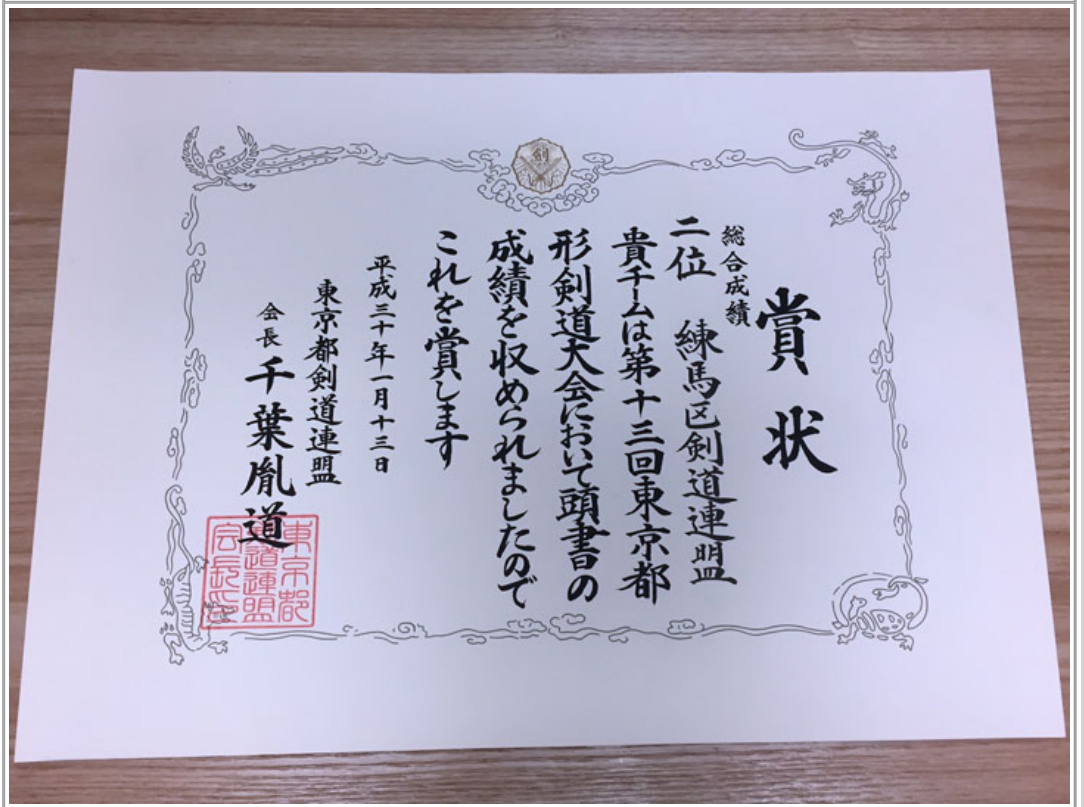 賞状
総合成績
二位 練馬区剣道連盟
貴チームは第十三回東京都
形剣道大会において頭書の
成績を収められましたので
これを賞します
平成三十年一月十三日
東京都剣道連盟
会長 千葉胤道
剣
東京都
剣道連盟
会長印